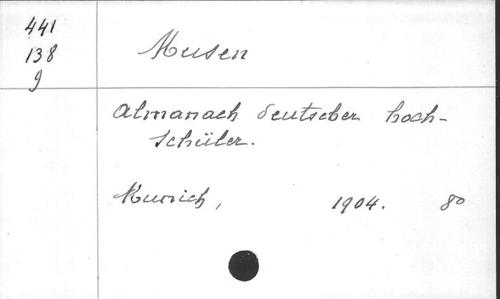 441
138
g
Musen
Almanach deutscher Hoch-
schüler.
Munich, 1904. 8º